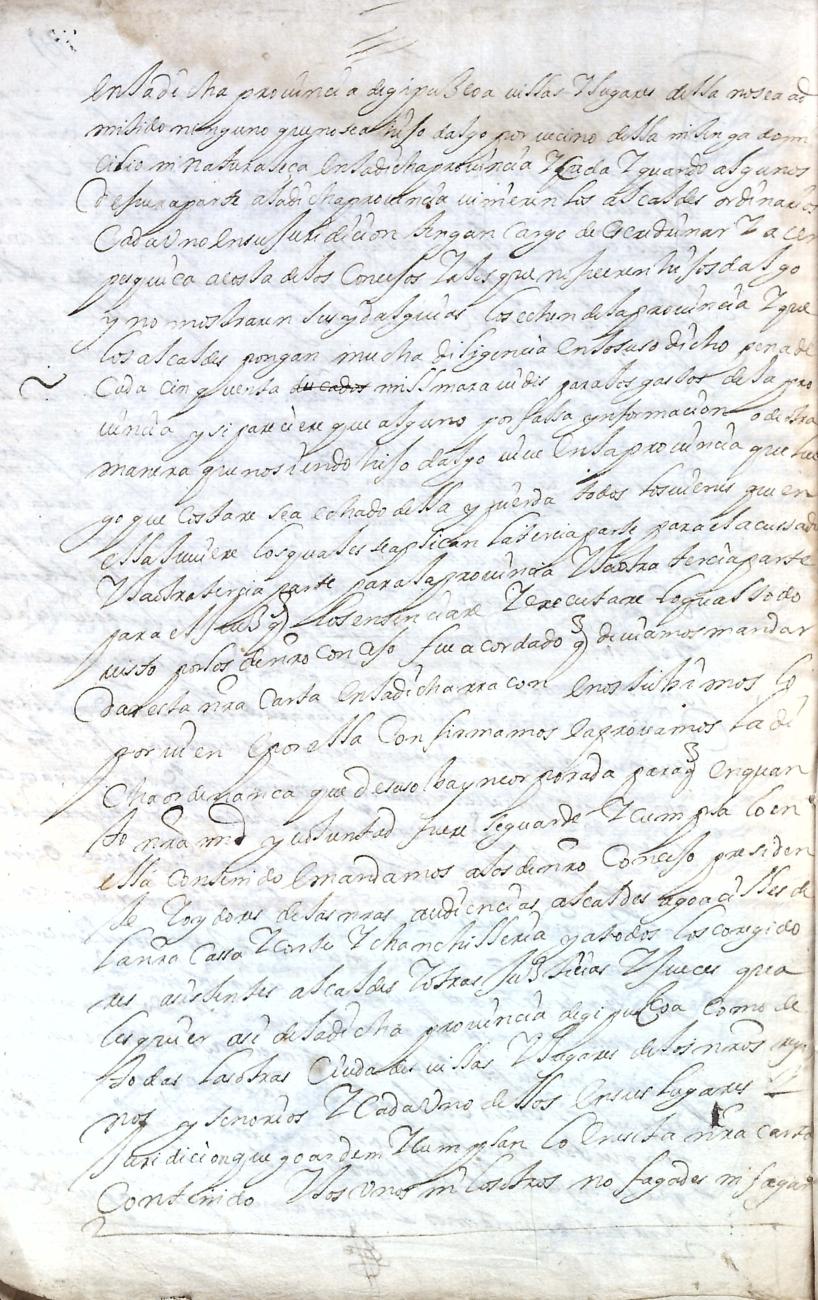 en la dicha provincia de gipuzcoa villas y lugares della no sea ad
mitido ninguno que no sea hijo dalgo por vecino della ni tenga domi
cilio ni naturaleça en la dicha provincia y cada y quando algunos
de fuera parte a la dicha provincia vinieren los alcaldes ordinarios
cada uno en su juridicion tengan cargo de escudriñar y acer
pesquiça a costa de los concejos y a los que no fueren hijos dalgo
y no mostraren sus ydalguias los echen de la provincia y que
los alcaldes pongan mucha diligencia en lo suso dicho pena de
cada cinquenta ducados mill maravidis para los gastos de la pro
vincia y si pareciere que alguno por falssa ynformacion o de otra
manera que no siendo hijo dalgo vive en la provincia que lue
go que costare sea echado della y pierda todos los vienes que en
ella tuviere los quales se aplican la tercia parte para el acussador
y la otra tercia parte para la provincia y la otra tercia parte
para el juez q lo sentenciare y executare lo qual todo
visto por los del nro concejo fue acordado q deviamos mandar
dar esta nra carta en la dicha rracon e nos tubimos lo
por vien e por ella confirmamos e aprovamos la di
cha ordenança que de suso ba yncorporada para q en quan
to nra md y voluntad fuere se guarde y cumpla lo en
ella contenido e mandamos a los del nro concejo presiden
te y oydores de las nras audiencias alcaldes agoacilles de
la nra cassa y corte y chanchilleria y a todos los coregido
res asistentes alcaldes y otras justicias y jueces qua
lesquier asi de la dicha provincia de gipuzcoa como de
todas las otras ciudades villas y lugares de los nros rey
nos y señorios y cada uno dellos en sus lugares y
juridicion que goarden y cumplan lo en esta nra carta
contenido y los unos ni los otros no fagades ni fagan